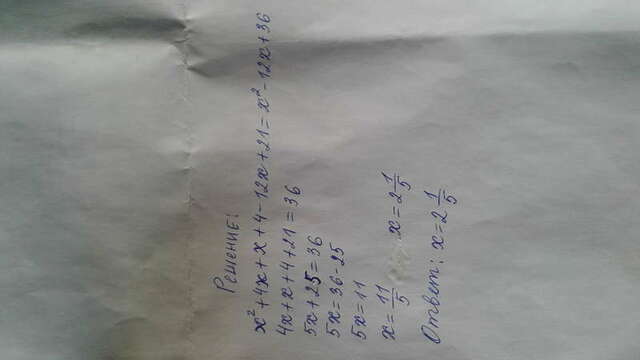 Решение:
x² + 4x + x + 4 - 12x + 21 = x² - 12x + 36
4x + x + 4 + 21 = 36
5x + 25 = 36
5x = 36 - 25
5x = 11
x = 11/5 x = 2 1/5
Ответ: x = 2 1/5